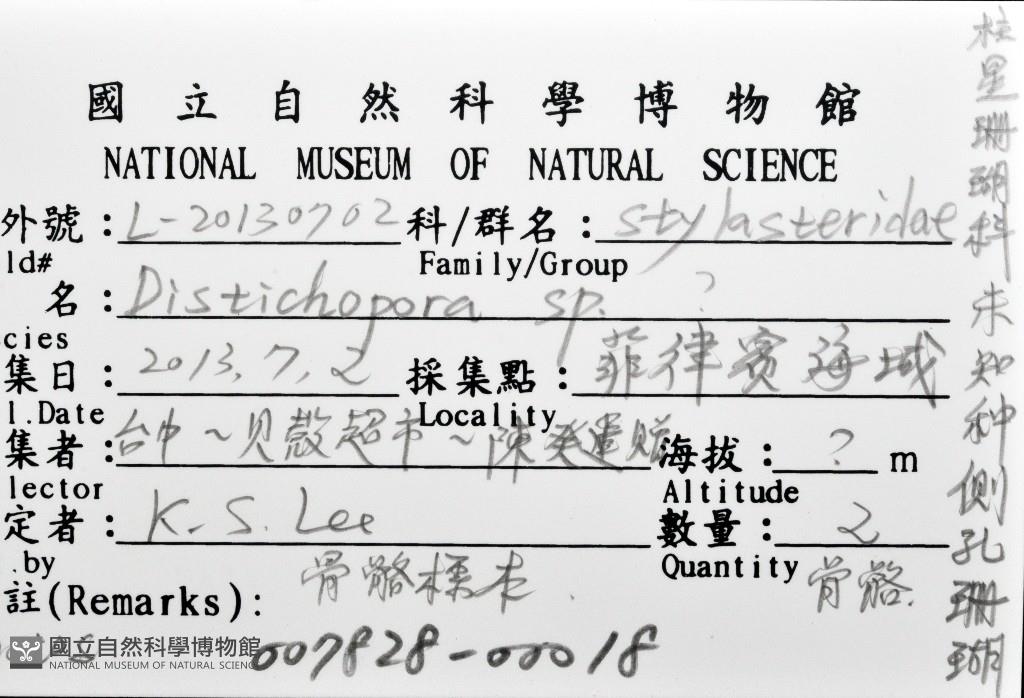 國立自然科學博物館
NATIONAL MUSEUM OF NATURAL SCIENCE
外號：L-20130702 科/群名：stylasteridae
ld# Family/Group
名：Distichopora sp. ?
cies
集日：2013.7.2 採集點：菲律賓海域
l.Date Locality
集者：台中~貝殼超市~陳 贈 海拔：? m
lector Altitude
定者：K.S. Lee 數量：2
.by Quantity 骨骼.
註(Remarks)：骨骼標本.
007828-00018
國立自然科學博物館
NATIONAL MUSEUM OF NATURAL SCIENCE
柱星珊瑚科 未知种側孔珊瑚